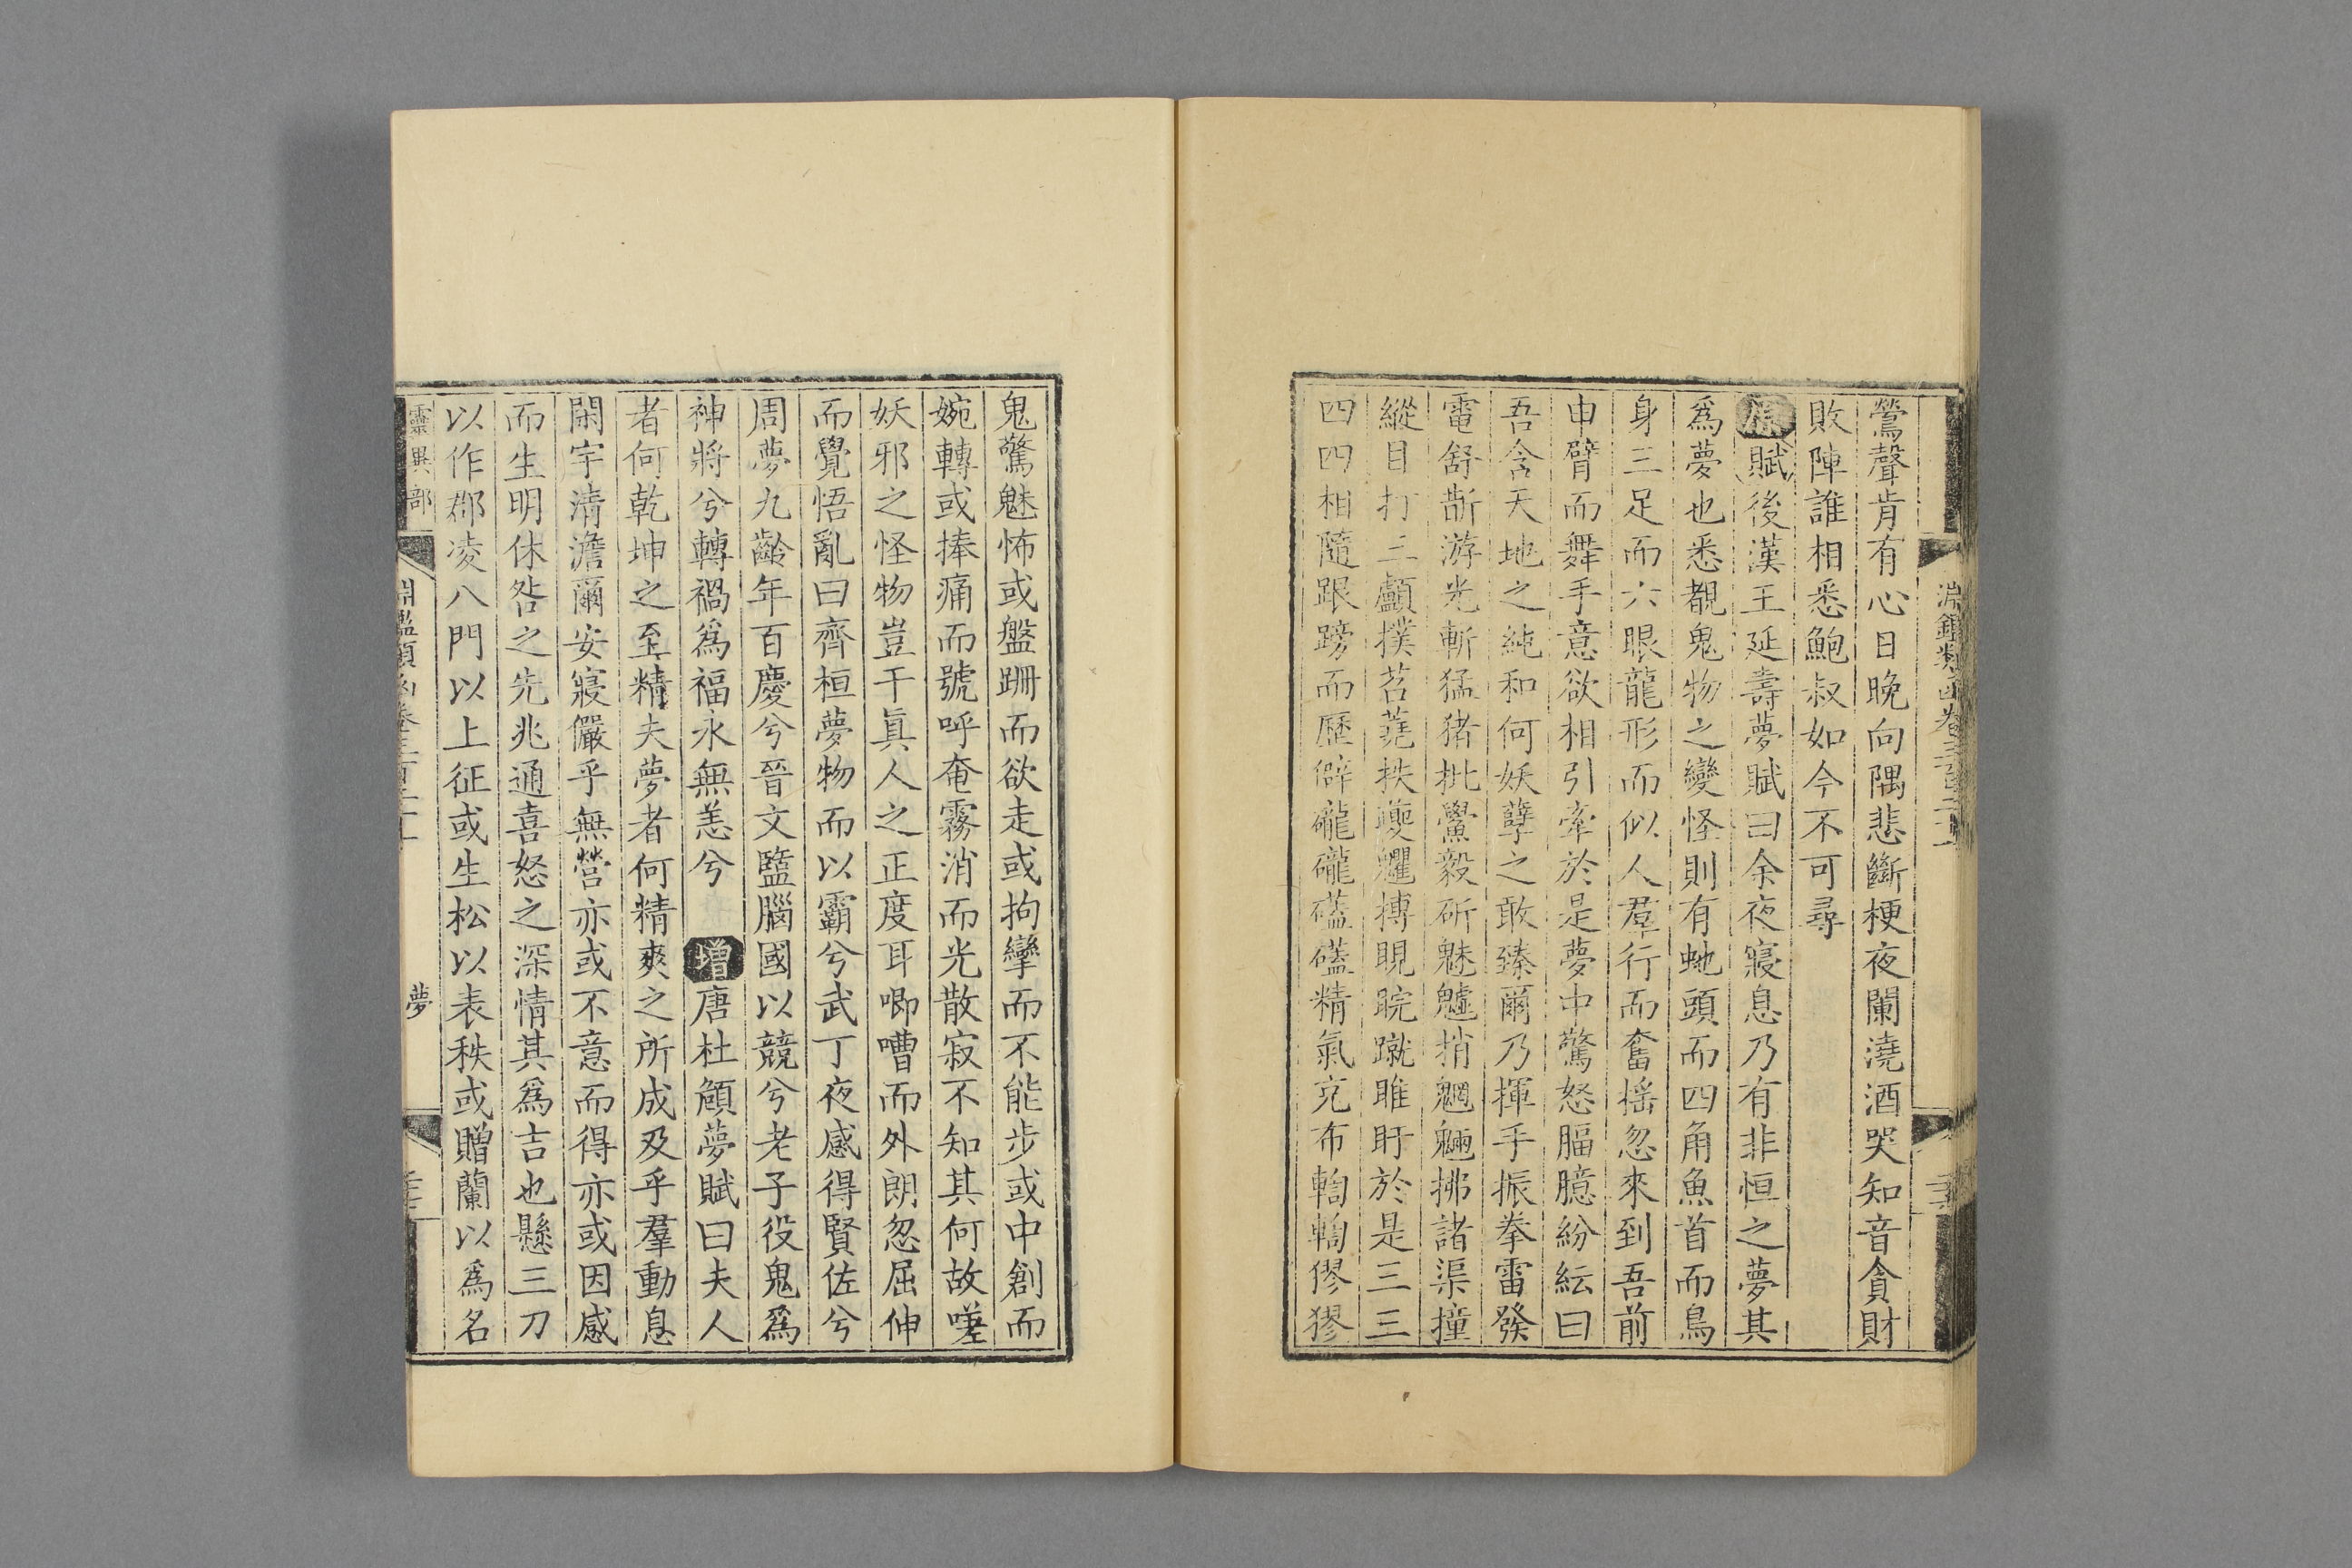 鶯聲肯有心日晚向隅悲斷梗夜闌澆酒哭知音貪財
敗陣誰相悉鮑叔如今不可尋
原賦後漢王延壽夢賦曰余夜寢息乃有非恒之夢其
爲夢也悉覩鬼物之變怪則有虵頭而四角魚首而鳥
身三足而六眼龍形而似人羣行而奮搖忽來到吾前
申臂而舞手意欲相引牽於是夢中驚怒腷臆紛紜曰
吾含天地之純和何妖孽之敢臻爾乃揮手振拳雷發
電舒斮游光斬猛猪批鷽毅斫魅魖捎魍魎拂諸渠撞
縱目打三顱撲苕蕘抶夔魖搏睍睆蹴睢盱於是三三
四四相隨踉蹡而歷僻礲礲礚礚精氣充布輷輷僇獠
鬼驚魅怖或盤跚而欲走或拘攣而不能步或中創而
婉轉或捧痛而號呼奄霧消而光散寂不知其何故嗟
妖邪之怪物豈干眞人之正度耳唧嘈而外朗忽屈伸
而覺悟亂曰齊桓夢物而以霸兮武丁夜感得賢佐兮
周夢九齡年百慶兮晉文盬腦國以競兮老子役鬼爲
神將兮轉禍爲福永無恙兮 增唐杜頠夢賦曰夫人
者何乾坤之至精夫夢者何精爽之所成及乎羣動息
閑宇淸澹爾安寢儼乎無營亦或不意而得亦或因感
而生明休咎之先兆通喜怒之深情其爲吉也懸三刀
以作郡凌八門以上征或生松以表秩或贈蘭以爲名
靈異部
夢